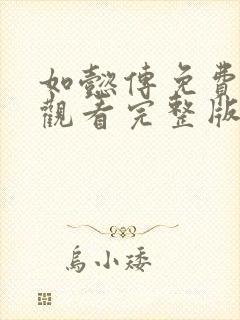 如懿傳免費
觀看完整版
烏小矮